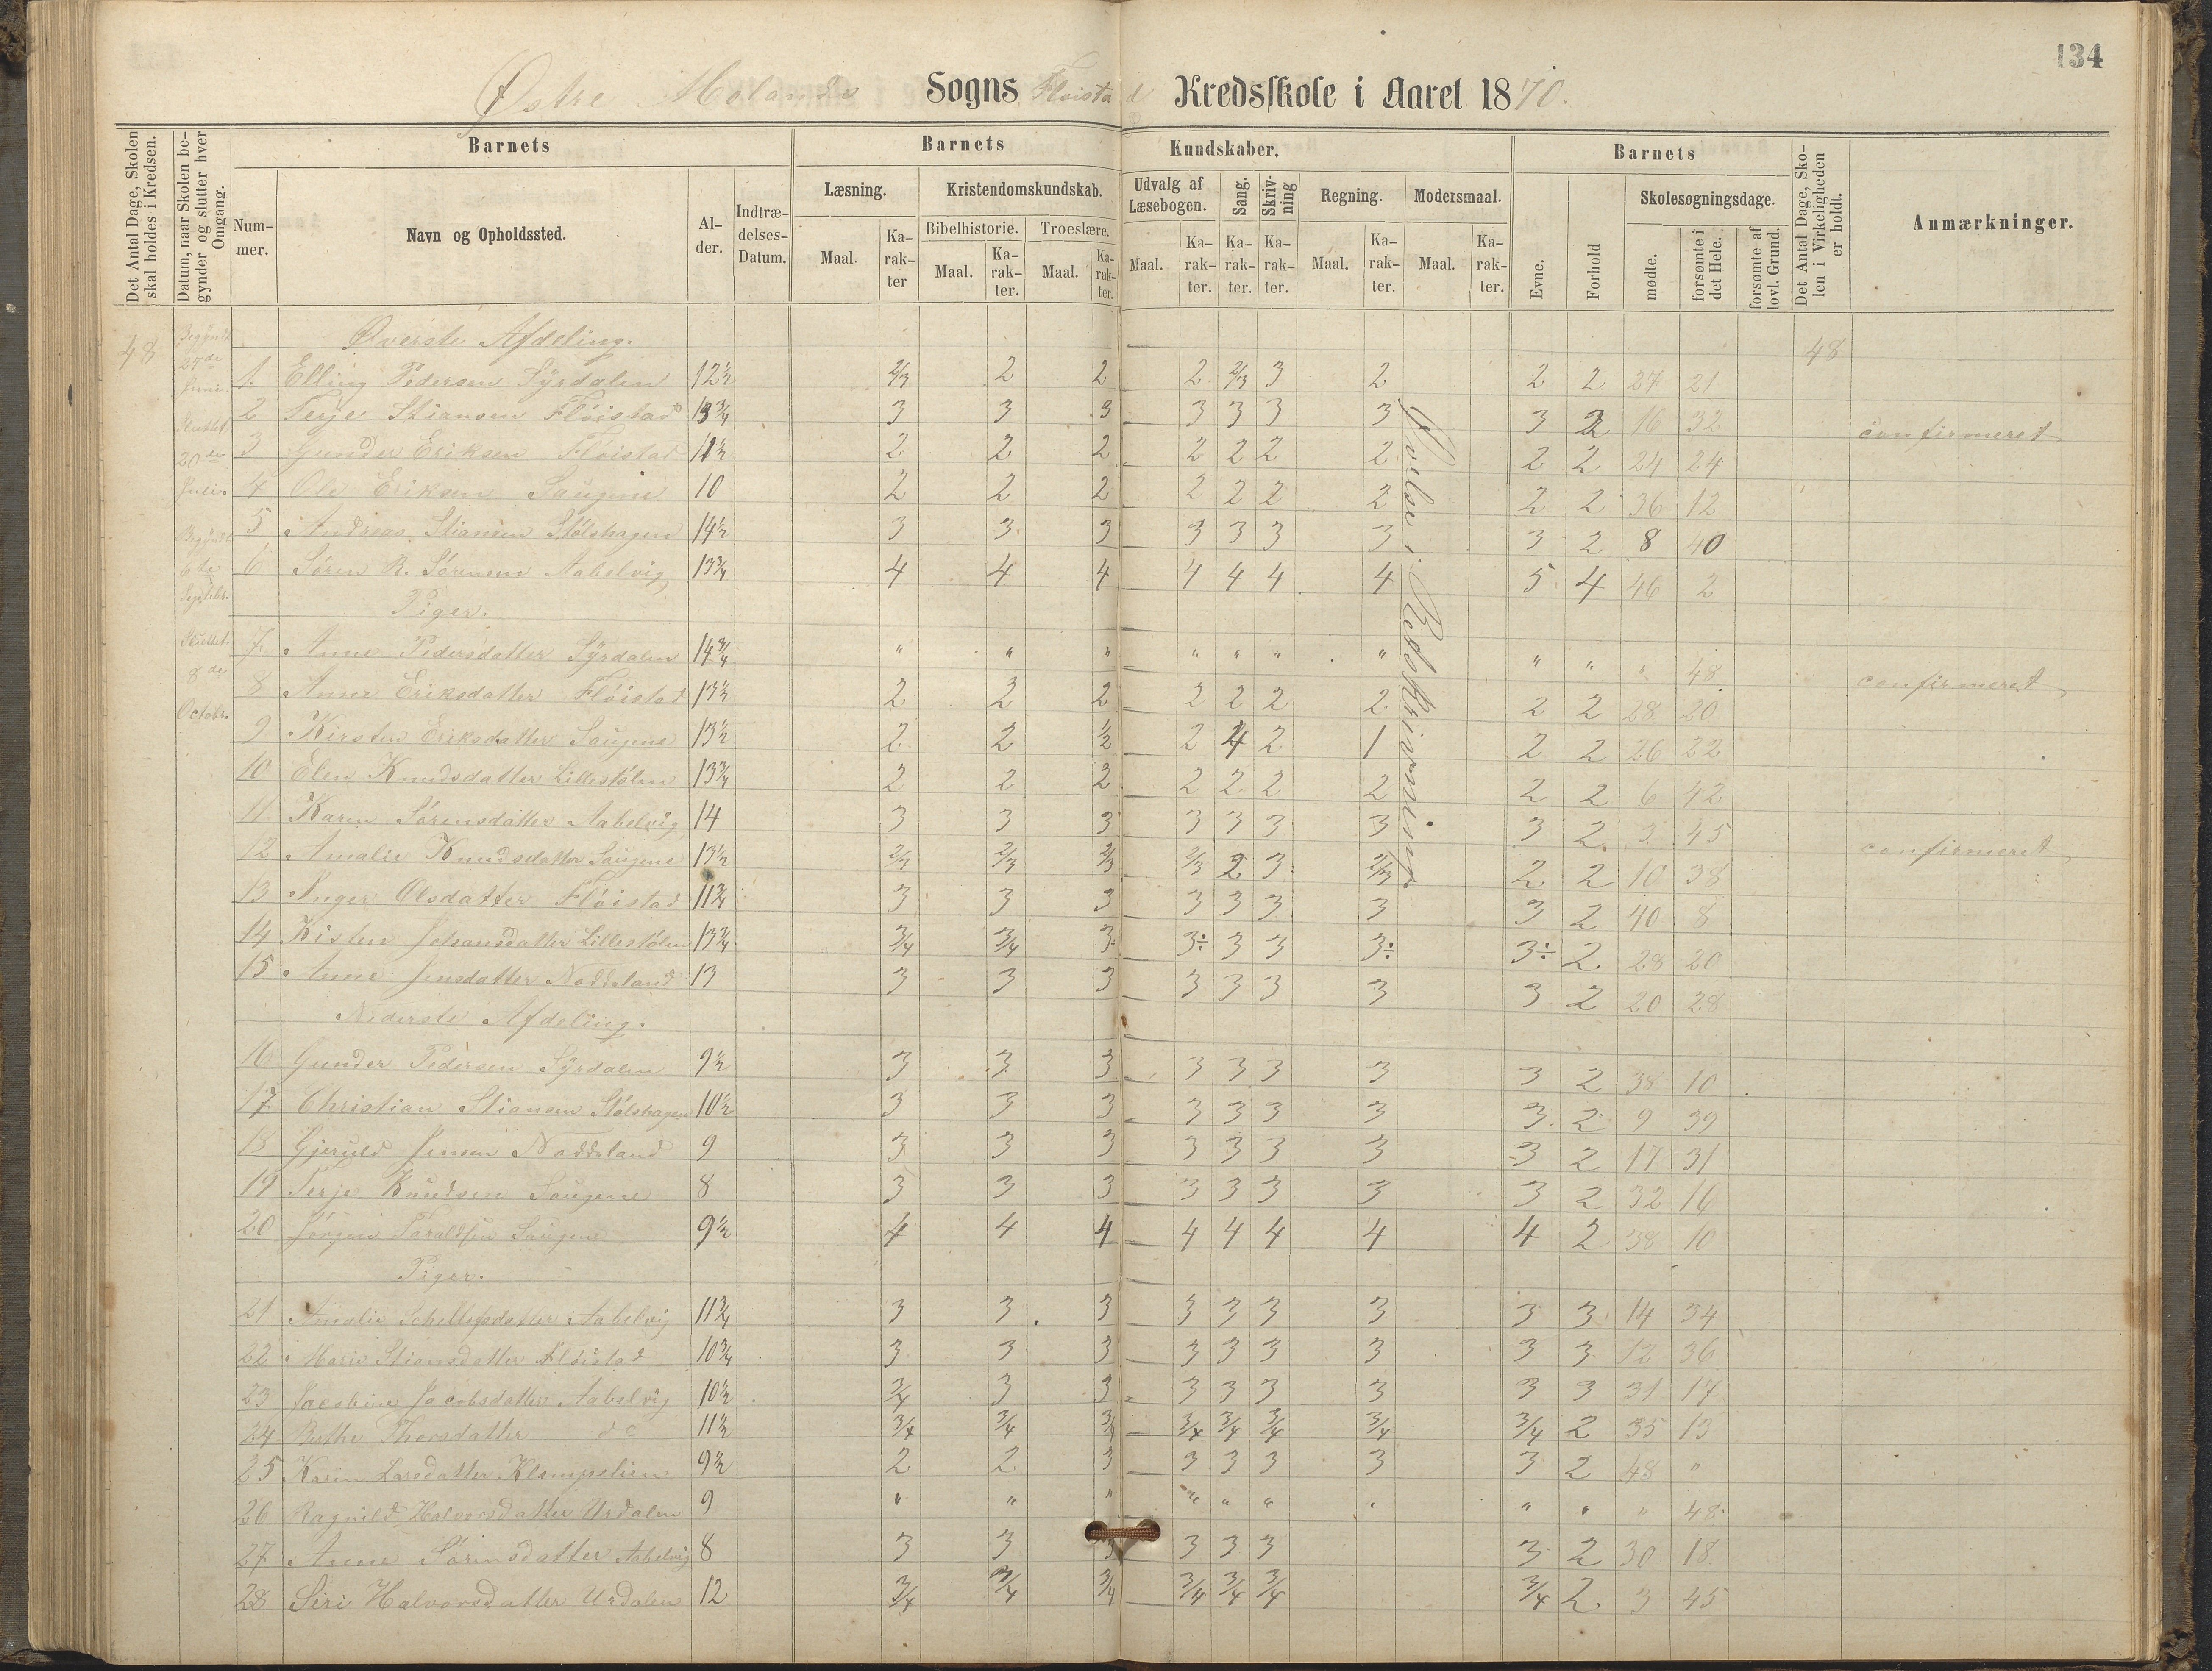 134
Østre Molands Sogns Fløistad Kredsskole i Aaret 1870.
Det Antal Dage, Skolen skal holdes i Kredsen.
Datum, naar Skolen begynder og slutter hver Omgang.
Barnets
Barnets
Kundskaber.
Barnets
Det Antal Dage, Skolen i Virkeligheden er holdt.
Anmærkninger.
Nummer.
Navn og Opholdssted.
Alder.
Indtrædelses-Datum.
Læsning.
Kristendomskundskab.
Udvalg af Læsebogen.
Sang.
Skrivning
Regning.
Modersmaal.
Evne.
Forhold
Skolesøgningsdage.
Bibelhistorie.
Troeslære.
Maal.
Karakter
Maal.
Karakter.
Maal.
Karakter.
Maal.
Karakter.
Karakter.
Karakter.
Maal.
Karakter.
Maal.
Karakter.
mødte.
forsømte i det Hele.
forsømte af lovl. Grund.
48
Begyndt 27de Juni.
Sluttet 20de Juli.
Begyndt 6te Septebr.
Sluttet 8de Octobr.
Øvelse i Retskrivning.
Øverste Afdeling. 48
1. Elling Pedersen Syrdalen 12½ 2/3 2 2 2 2/3 3 2 2 2 27 21
2 Terje Stiansen Fløistad 13¾ 3 3 3 3 3 3 3 3 2 16 32 confirmeret
3 Gunder Eriksen Fløistad 11½ 2 2 2 2 2 2 2 2 2 24 24
4 Ole Eriksen Saugene 10 2 2 2 2 2 2 2 2 2 36 12
5 Andreas Stiansen Stølshagen 14½ 3 3 3 3 3 3 3 3 2 8 40
6 Søren R. Sørensen Aabelvig 13¾ 4 4 4 4 4 4 4 5 4 46 2
Piger.
7. Anne Pedersdatter Syrdalen 14¾ " " " " " " " " " " 48 confirmeret
8 Anne Eriksdatter Fløistad 13½ 2 2 2 2 2 2 2 2 2 28 20
9 Kirsten Eriksdatter Saugene 13½ 2 2 ½ 2 4 2 1 2 2 26 22
10 Elen Knudsdatter Lillestølen 13¾ 2 2 2 2 2 2 2 2 2 6 42
11. Karen Sørensdatter Aabelvig 14 3 3 3 3 3 3 3 3 2 3 45 confirmeret
12 Amalie Knudsdatter Saugene 13½ 2/3 2/3 2/3 2/3 2 3 2/3 2 2 10 38
13 Inger Olsdatter Fløistad 11¾ 3 3 3 3 3 3 3 3 2 40 8
14 Kisten Johansdatter Lillestølen 13¾ 3/4 3/4 3÷ 3÷ 3 3 3÷ 3÷ 2 28 20
15 Anne Jensdatter Noddeland 13 3 3 3 3 3 3 3 3 2 20 28
Nederste Afdeling.
16 Gunder Pedersen Syrdalen 9½ 3 3 3 3 3 3 3 3 2 38 10
17 Christian Stiansen Stølshagen 10½ 3 3 3 3 3 3 3 3 2 9 39
18 Gjeruld Jensen Noddeland 9 3 3 3 3 3 3 3 3 2 17 31
19 Terje Knudsen Saugene 8 3 3 3 3 3 3 3 3 2 32 16
20 Jørgen Taraldsen Saugene 9½ 4 4 4 4 4 4 4 4 2 38 10
Piger.
21 Amalie Schellefsdatter Aabelvig 11¾ 3 3 3 3 3 3 3 3 3 14 34
22 Marie Stiansdatter Fløistad 10¾ 3 3 3 3 3 3 3 3 3 12 36
23 Jacobine Jacobsdatter Aabelvig 10½ 3/4 3 3 3 3 3 3 3 3 31 17
24 Berthe Thorsdatter do 11½ 3/4 3/4 3/4 3/4 3/4 3/4 3/4 3/4 2 35 13
25 Karen Larsdatter Klompelien 9½ 2 2 3 3 3 3 3 3 2 48 "
26 Ragnild Halvorsdatter Urdalen 9 " " " " " " " " " " 48
27 Anne Sørensdatter Aabelvig 8 3 3 3 3 3 3 3 2 30 18
28 Siri Halvorsdatter Urdalen 12 3/4 3/4 3/4 3/4 3/4 3/4 3/4 2 3 45